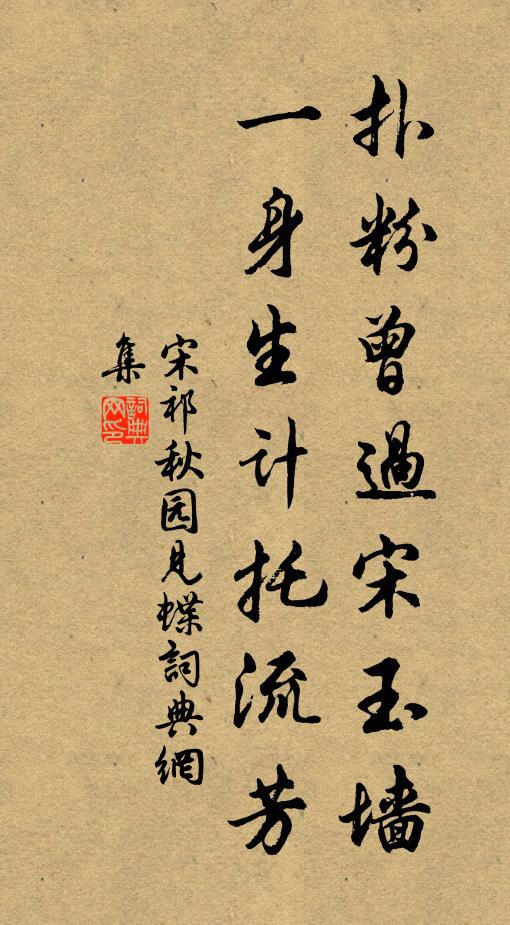 扑粉曾過宋玉墙
一身生计托流芳
宋祁秋园見蝶詞典網
集
詞典網印